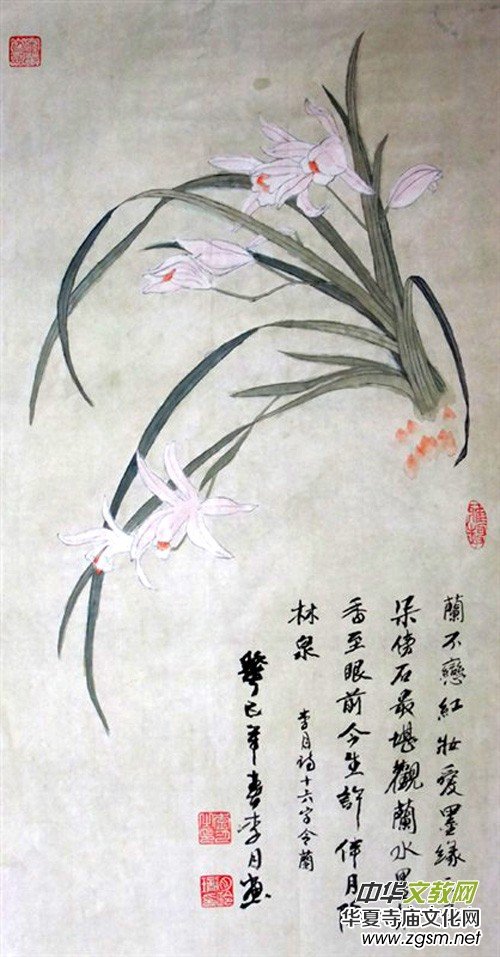 蘭不戀紅妝愛墨緣
朵傍石最堪觀蘭水墨
香至眼前今生許伴月隱
林泉
李月詩十六字令蘭
癸巳年春李月畫
中华文教网
华夏寺庙文化网
www.zgsm.net